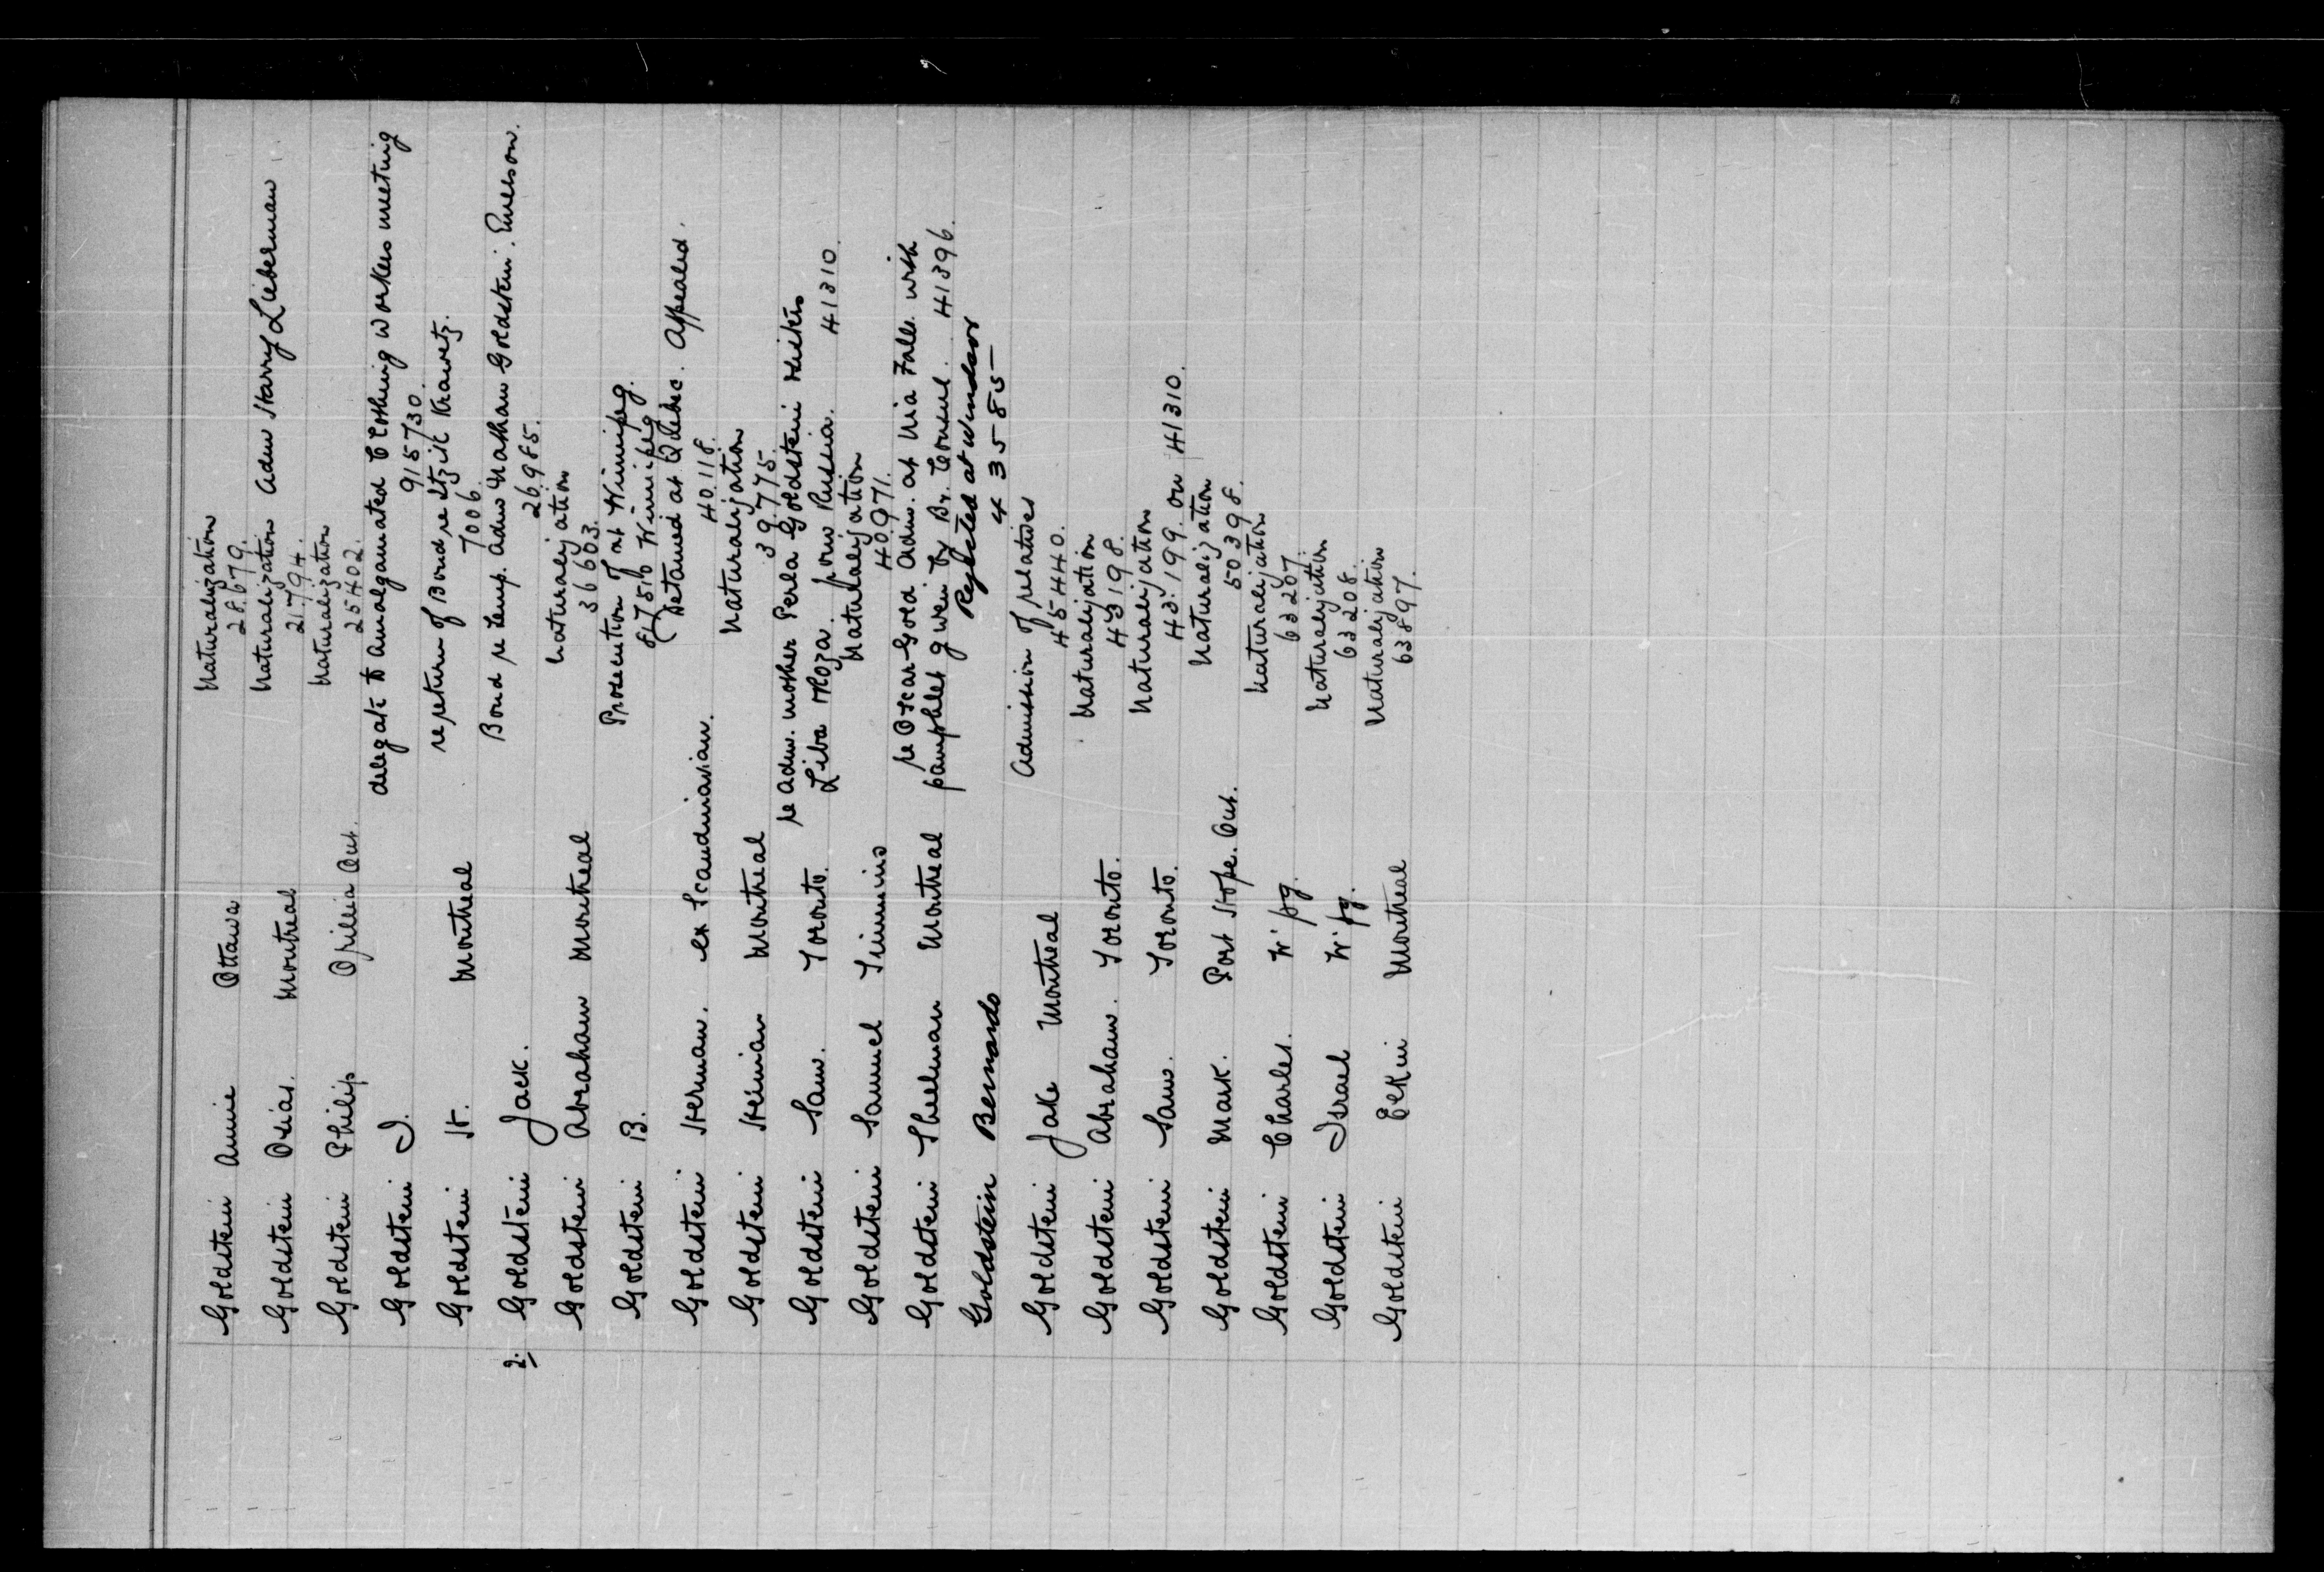 Naturalization
Goldstein Annie Ottawa 28679.
Naturalization Adm Harry Lieberman
Goldstein Osias. Montreal 21794.
Naturalization
Goldstein Philip Orillia Ont. 25402.
delegate to Amalgamated Clothing Workers meeting
Goldstein I. 915730.
re return of Bond re Itzik Krawetz.
Goldstein H. Montreal 7006.
Bond re temp. Adm Nathan Goldstein. Emerson.
2. Goldstein Jack. 26985.
Naturalization
Goldstein Abraham Montreal 36603.
Prosecution of at Winnipeg.
Goldstein B. 817510 Winnipeg
(Detained at Quebec. Appealed.
Goldstein Herman. ex Scandinavian. 40118.
Naturalization
Goldstein Heiman Montreal 39775.
re Adm. mother Perla Goldstein sisters
Goldstein Sam. Toronto. Liba + Roza. from Russia. 41310.
Naturalization
Goldstein Samuel Timmins 40971.
re Oscar Gold. Adm. at Nia Falls with
Goldstein Sheelman Montreal pamphlet given by Br. Consul. 41396.
Rejected at Windsor
Goldstein Bernardo 435885
Admission of relatives
Goldstein Jake Montreal 45440.
Naturalization
Goldstein Abraham. Toronto. 43198.
Naturalization
Goldstein Sam. Toronto. 43199. on 41310.
Naturalization
Goldstein Mark. Port Hope. Ont. 50398.
Naturalization
Goldstein Charles. W'pg. 63207.
Naturalization
Goldstein Israel W'pg. 63208.
Naturalization
Goldstein Montreal 63897.